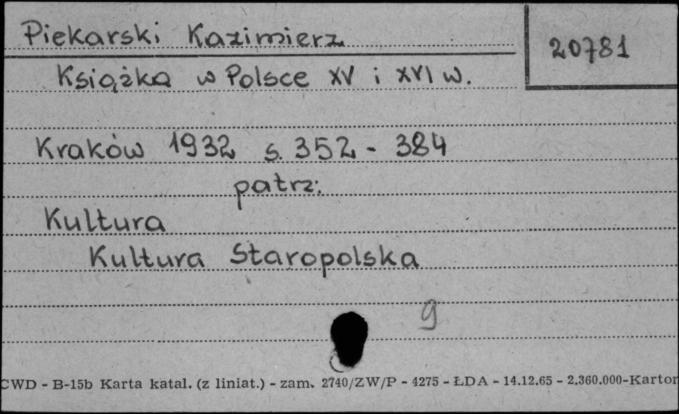 Piekarski Kazimierz
20781
Książka w Polsce XV i XVI w.
Kraków 1932 s. 352 - 384
patrz:
Kultura
Kultura Staropolska
9
CWD - B-15b Karta katal. (z liniat.) - zam. 2740/ZW/P - 4275 - ŁDA - 14.12.65 - 2.360.000-Karton